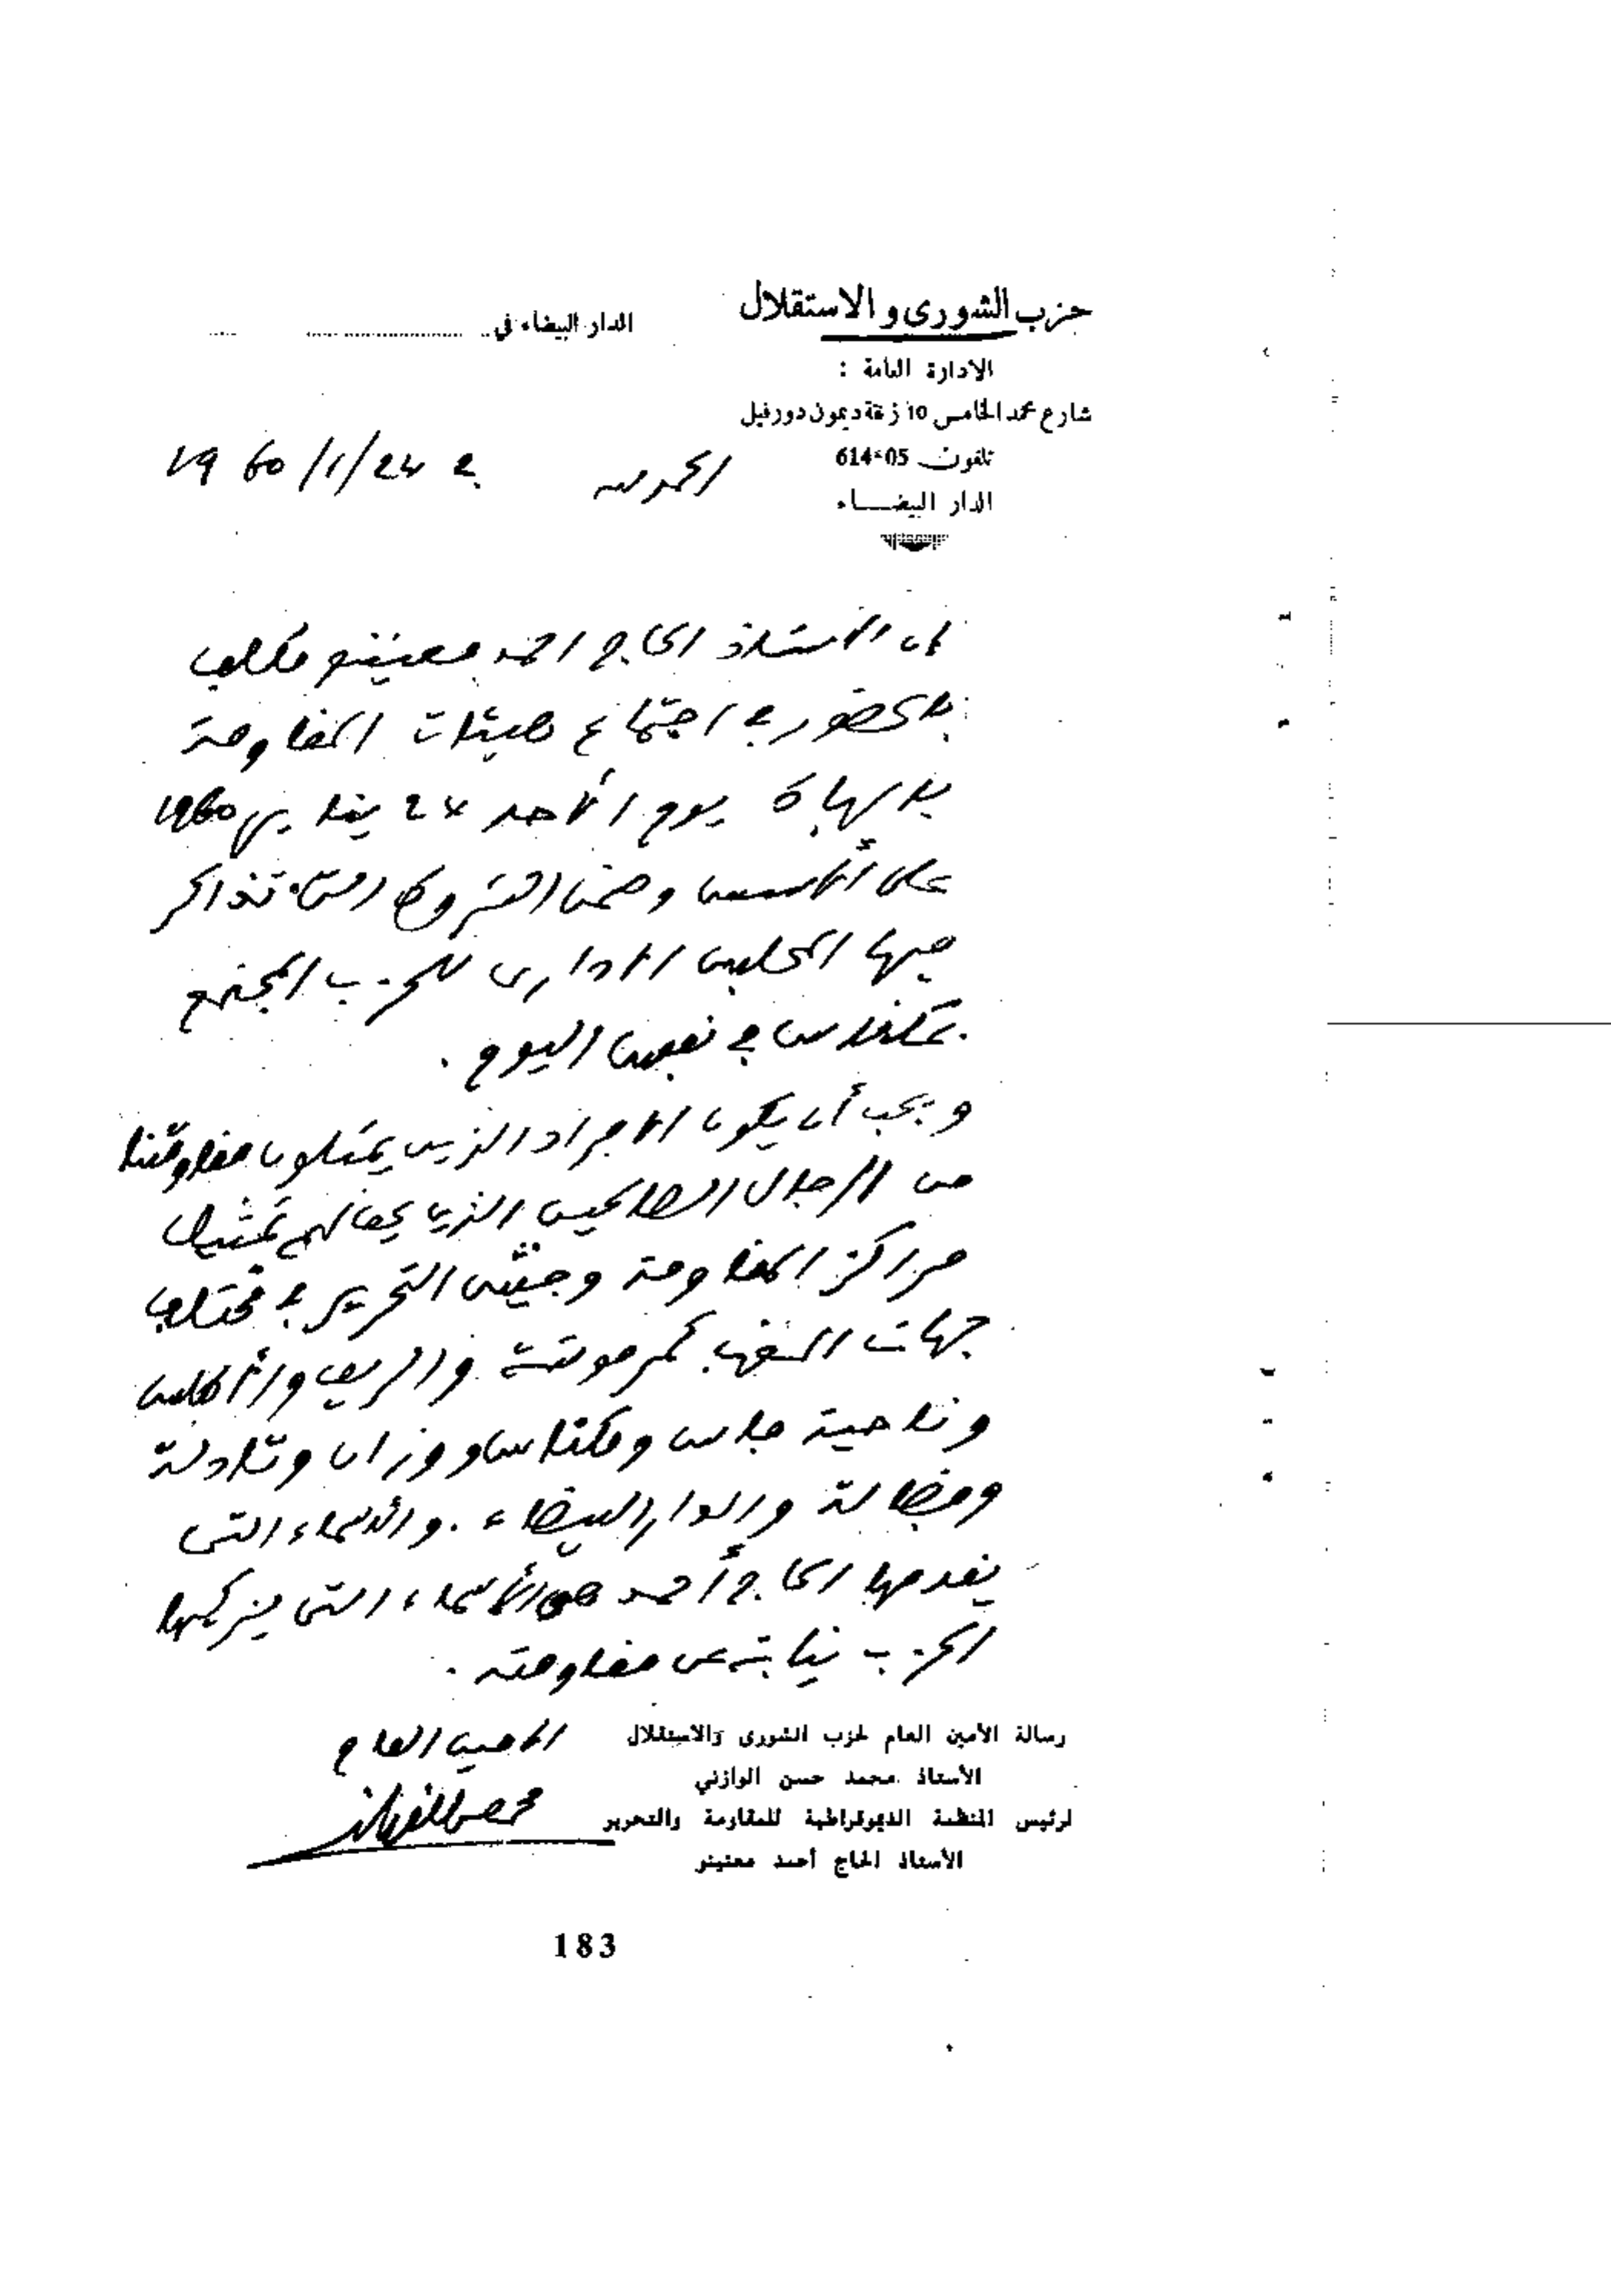 حزب الشورى و الاستقلال
الدار البيضاء في
الادارة العامة :
شارع محمد الخامس 10 زنقة ديمون دورفيل
تلفون 05-614
الدار البيضاء
الحمد لله في 24/1/1960
ان الأستاذ الحاج احمد معنينو مكلف
بالحضور في اجتماع هيئات المقاومة
بالرباط يوم الأحد 24 يناير 1960
على الأسس وضمن الشروط التي تذاكر
فيها المجلس الاداري للحزب المجتمع
بمكناس في نفس اليوم .
ويجب أن يكون الافراد الذين يمثلون مقاومتنا
من الرجال الصالحين الذين يحق لهم تمثيل
مراكز المقاومة وجيش التحرير في مختلف
جهات المغرب كمرموشة والريف والأطلس
وناحية فاس ومكناس ووزان وتادلة
وفضالة والدار البيضاء . والأسماء التي
يقدمها الحاج أحمد هي الأسماء التي يزكيها
الحزب نيابة عن مقاومته .
الامين العام
رسالة الأمين العام لحزب الشورى والاستقلال
الأستاذ محمد حسن الوازني
لرئيس المنظمة الديموقراطية للمقاومة والتحرير
الأستاذ الحاج أحمد معنينو
183